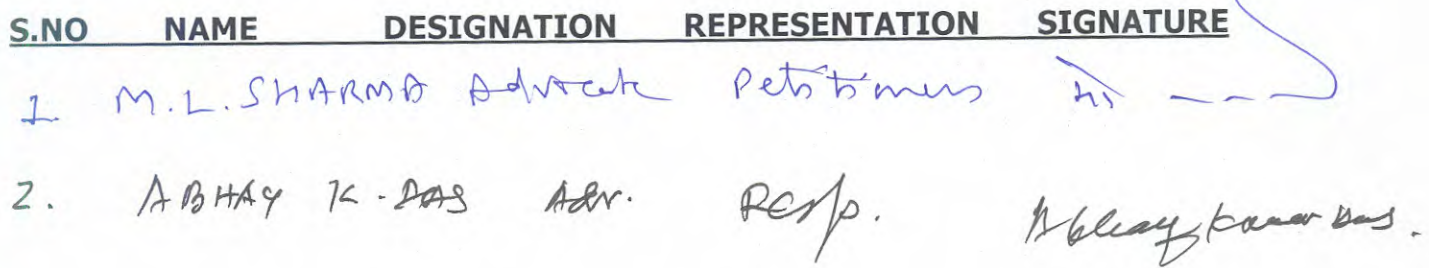 S.NO NAME DESIGNATION REPRESENTATION SIGNATURE
1. M.L. SHARMA Advocate Petitioners
2. ABHAY K. DAS Adv. Resp. Abhay Kumar Das.